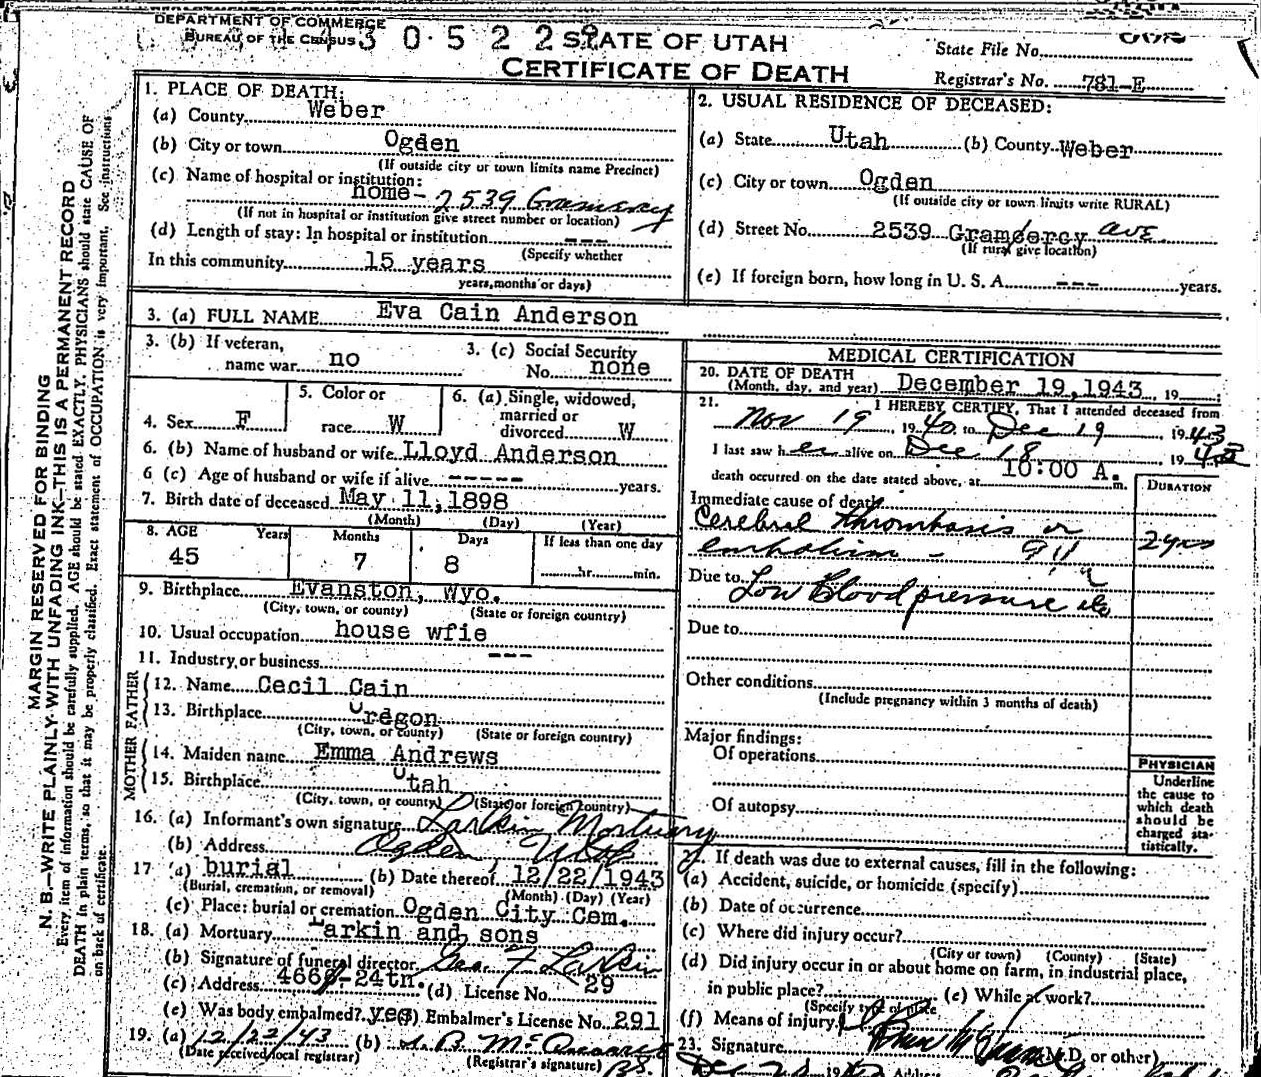 DEPARTMENT OF COMMERCE
BUREAU OF THE CENSUS
3 0 5 2 2
STATE OF UTAH
CERTIFICATE OF DEATH
State File No.
Registrar's No. 781-E
MARGIN RESERVED FOR BINDING
N. B.—WRITE PLAINLY WITH UNFADING INK—THIS IS A PERMANENT RECORD
Every item of information should be carefully supplied. AGE should be stated EXACTLY. PHYSICIANS should state CAUSE OF
DEATH in plain terms, so that it may be properly classified. Exact statement of OCCUPATION is very important. See instructions
on back of certificate.
1. PLACE OF DEATH:
(a) County Weber
(b) City or town Ogden
(If outside city or town limits name Precinct)
(c) Name of hospital or institution:
home- 2539 Gramercy
(If not in hospital or institution give street number or location)
(d) Length of stay: In hospital or institution ---
(Specify whether
In this community 15 years
years, months or days)
2. USUAL RESIDENCE OF DECEASED:
(a) State Utah (b) County Weber
(c) City or town Ogden
(If outside city or town limits write RURAL)
(d) Street No. 2539 Gramdercy ave
(If rural give location)
(e) If foreign born, how long in U. S. A. --- years.
3. (a) FULL NAME Eva Cain Anderson
3. (b) If veteran, name war no
3. (c) Social Security No. none
4. Sex F
5. Color or race W
6. (a) Single, widowed, married or divorced W
6. (b) Name of husband or wife Lloyd Anderson
6 (c) Age of husband or wife if alive ----- years.
7. Birth date of deceased May 11, 1898
(Month) (Day) (Year)
8. AGE Years Months Days If less than one day
45 7 8 hr. min.
9. Birthplace Evanston, Wyo.
(City, town, or county) (State or foreign country)
10. Usual occupation house wfie
11. Industry or business ---
FATHER
12. Name Cecil Cain
13. Birthplace Oregon
(City, town, or county) (State or foreign country)
MOTHER
14. Maiden name Emma Andrews
15. Birthplace Utah
(City, town, or county) (State or foreign country)
16. (a) Informant's own signature Larkin Mortuary
(b) Address Ogden Utah
17 (a) burial (b) Date thereof 12/22/1943
(Burial, cremation, or removal) (Month) (Day) (Year)
(c) Place: burial or cremation Ogden City Cem.
18. (a) Mortuary Larkin and sons
(b) Signature of funeral director Geo. F Larkin
(c) Address 466-24th. (d) License No. 29
(e) Was body embalmed? yes (f) Embalmer's License No. 291
19. (a) 12/22/43 (b)
(Date received local registrar) (Registrar's signature)
MEDICAL CERTIFICATION
20. DATE OF DEATH
(Month, day, and year) December 19, 1943, 19
21. I HEREBY CERTIFY, That I attended deceased from
Nov 19, 1940, to Dec 19, 1943
I last saw her alive on Dec 18, 194
death occurred on the date stated above, at 10:00 A. m.
DURATION
Immediate cause of death
Cerebral thrombosis or
embolism - 2 yrs
Due to Low Blood pressure etc
Due to
Other conditions
(Include pregnancy within 3 months of death)
Major findings:
Of operations
Of autopsy
PHYSICIAN
Underline
the cause to
which death
should be
charged sta-
tistically.
22. If death was due to external causes, fill in the following:
(a) Accident, suicide, or homicide (specify)
(b) Date of occurrence
(c) Where did injury occur?
(City or town) (County) (State)
(d) Did injury occur in or about home on farm, in industrial place,
in public place? (e) While at work?
(Specify type of place
(f) Means of injury
23. Signature (M.D. or other)